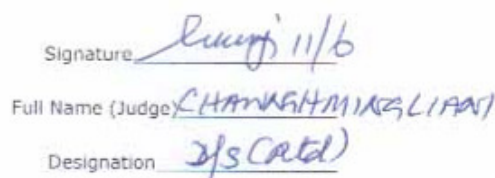 Signature 11/6
Full Name (Judge) CHAWNGHMINGLIANI
Designation D/S (Retd)